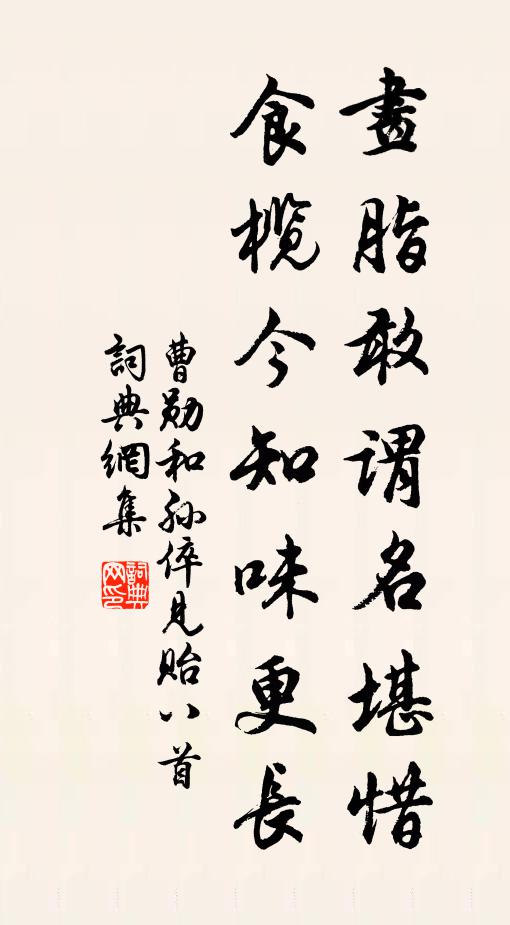 畫脂敢謂名堪惜
食欖今知味更長
曹勛和孙倅見貽八首
詞典網集
詞典网印